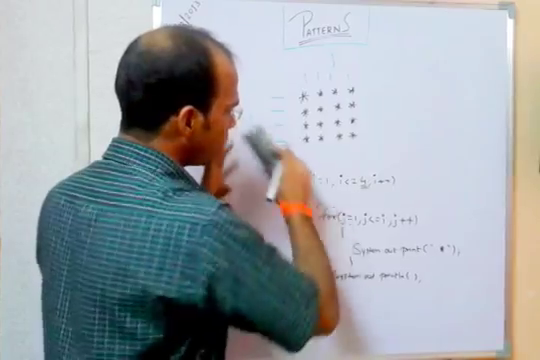 PATTERNS
* * * *
* * * *
* * * *
* * * *
=1, i<=4, i++)
for(j=1, j<=i, j++)
System out print("*");
system out println( ),